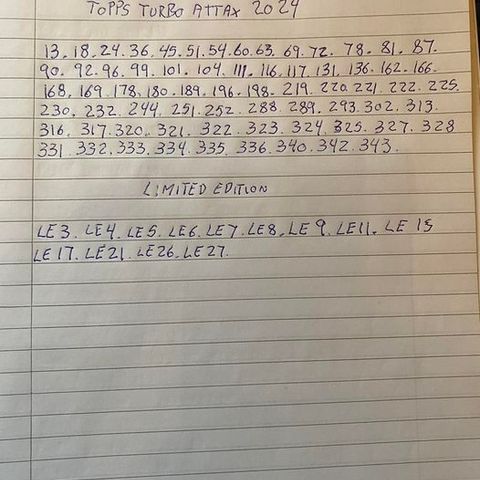 TOPPS TURBO ATTAX 2024
13. 18. 24. 36. 45. 51. 54. 60. 63. 69. 72. 78. 81. 87.
90. 92. 96. 99. 101. 104. 111. 116. 117. 131. 136. 162. 166.
168. 169. 178. 180. 189. 196. 198. 219. 220. 221. 222. 225.
230. 232. 244. 251. 252. 288. 289. 293. 302. 313.
316. 317. 320. 321. 322. 323. 324. 325. 327. 328
331. 332. 333. 334. 335. 336. 340. 342. 343.
LIMITED EDITION
LE3. LE4. LE5. LE6. LE7. LE8. LE9. LE11. LE 15
LE17. LE21. LE26. LE27.